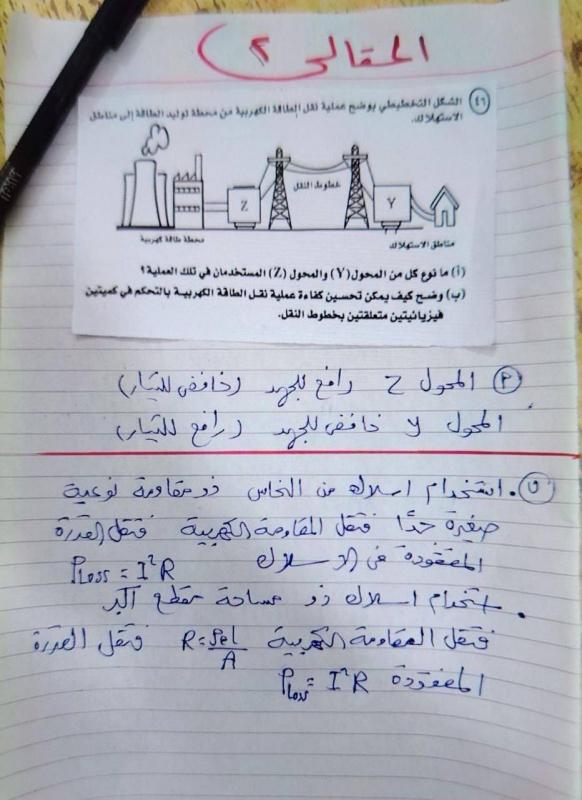 المقالى ٢)
٤٦ الشكل التخطيطي يوضح عملية نقل الطاقة الكهربية من محطة توليد الطاقة إلى مناطق
الاستهلاك.
خطوط النقل
Z
Y
محطة طاقة كهربية
مناطق الاستهلاك
(أ) ما نوع كل من المحول (Y) والمحول (Z) المستخدمان في تلك العملية؟
(ب) وضح كيف يمكن تحسين كفاءة عملية نقل الطاقة الكهربية بالتحكم في كميتين
فيزيائيتين متعلقتين بخطوط النقل.
٢ المحول Z رافع للجهد (خافض للتيار)
المحول y خافض للجهد (رافع للتيار)
ب . استخدام اسلاك من النحاس ذو مقاومة نوعية
صغيرة جدًا فتقل المقاومة الكهربية فتقل القدرة
المفقودة فى الاسلاك Ploss = I²R
. استخدام اسلاك ذو مساحة مقطع اكبر
فتقل المقاومة الكهربية R = ρel/A فتقل القدرة
المفقودة Ploss = I²R